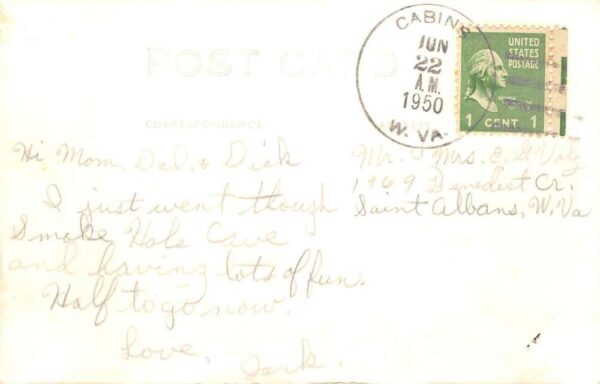 POST CARD
CORRESPONDENCE
CABINS
JUN
22
A.M.
1950
W. VA
UNITED
STATES
POSTAGE
1 CENT 1
Hi Mom, Dad, & Dick
I just went though
Smoke Hole Cave
and having lots of fun.
Half to go now.
Love,
Mr. Mrs. E.
1969 Benedict Cr.
Saint Albans, W. Va